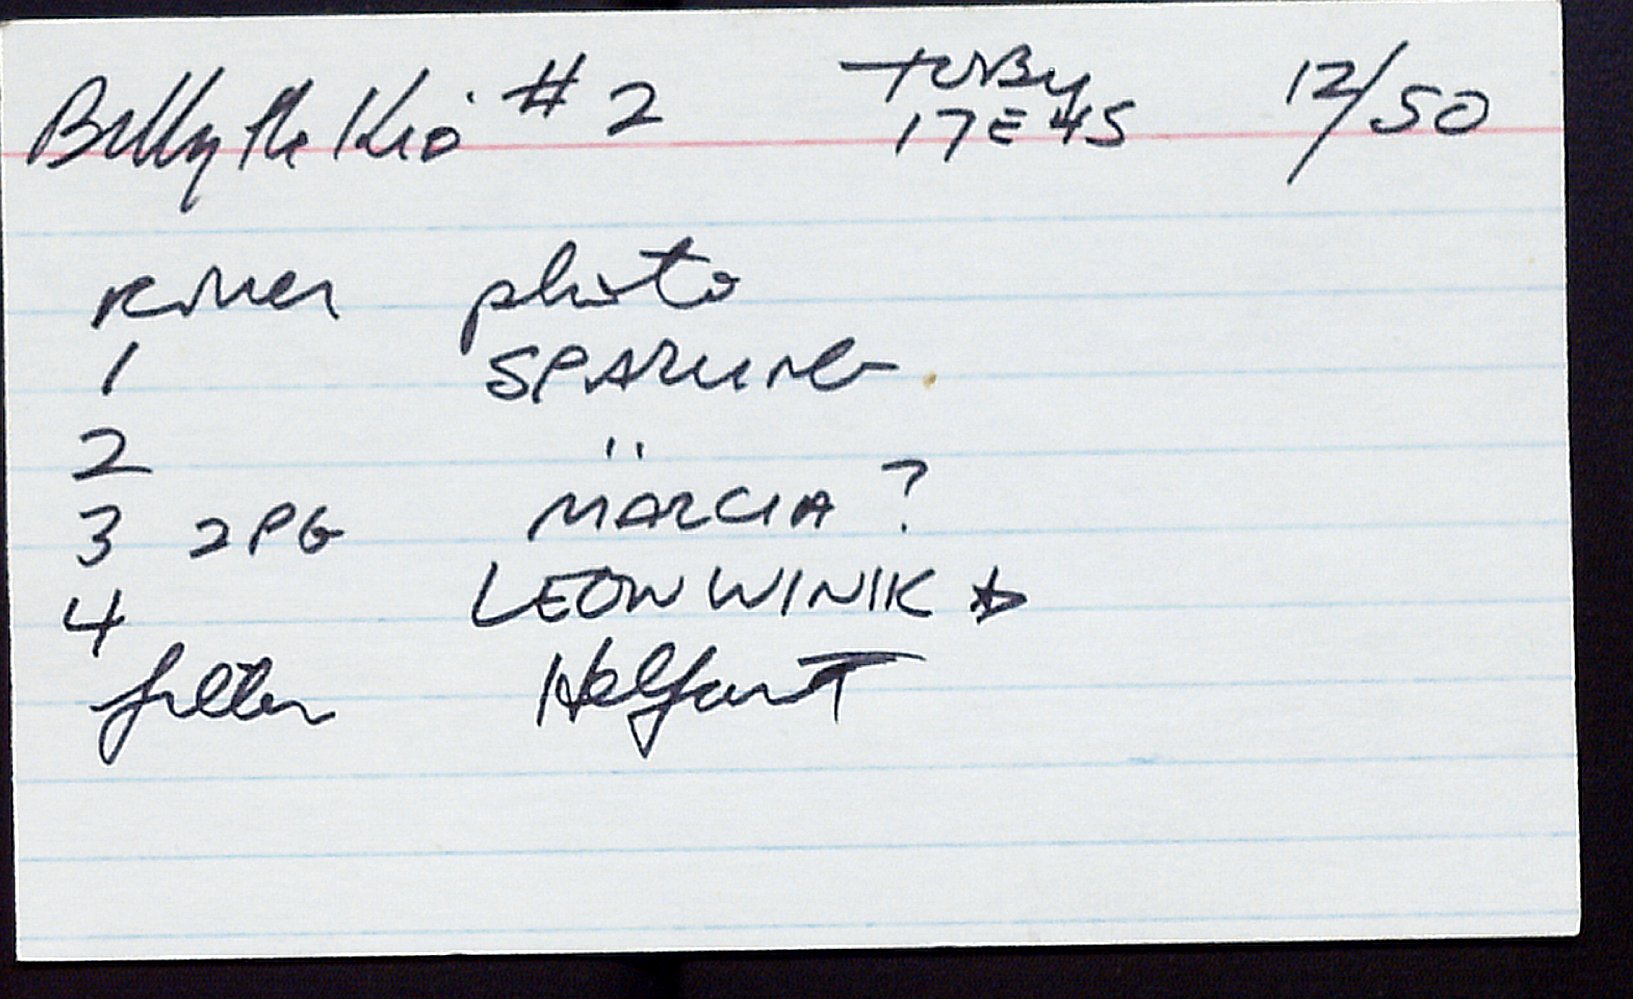 Billy the Kid #2 TOBY 12/50
17E45
kiver photo
1 SPARLING
2 "
3 2PG MARCIA ?
4 LEON WINIK ☆
filler Helfant